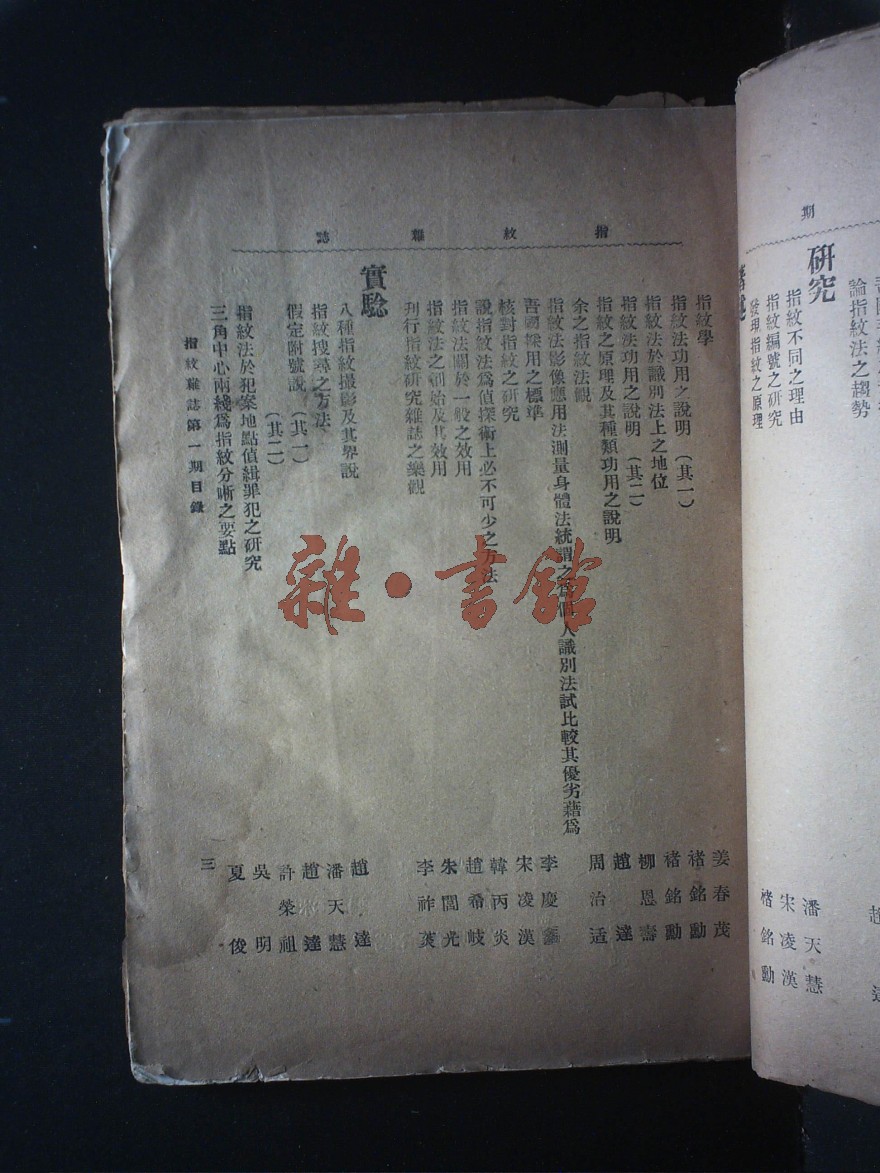 期
論指紋法之趨勢
研究
指紋不同之理由
指紋編號之研究
發現指紋之原理
潘天慧
宋凌漢
褚銘勳
指紋雜誌
指紋學
姜春茂
指紋法功用之說明(其一)
褚銘勳
指紋法於識別法上之地位
褚銘勳
指紋法功用之說明(其二)
柳恩壽
指紋之原理及其種類功用之說明
趙達
余之指紋法觀
周治适
指紋法影像應用法測量身體法統謂之爲個人識別法試比較其優劣藉爲
吾國採用之標準
李慶
核對指紋之研究
宋凌漢
說指紋法爲偵探術上必不可少之方法
韓丙炎
指紋法關於一般之效用
趙希岐
指紋法之創始及其效用
朱誾光
刊行指紋研究雜誌之樂觀
李祚葵
實驗
八種指紋撮影及其界說
趙達
指紋搜尋之方法
潘天慧
假定附號說(其一)
趙達
(其二)
許榮祖
指紋法於犯案地點偵緝罪犯之研究
吳明
三角中心兩綫爲指紋分晰之要點
夏俊
指紋雜誌第一期目錄
三
雜·書館